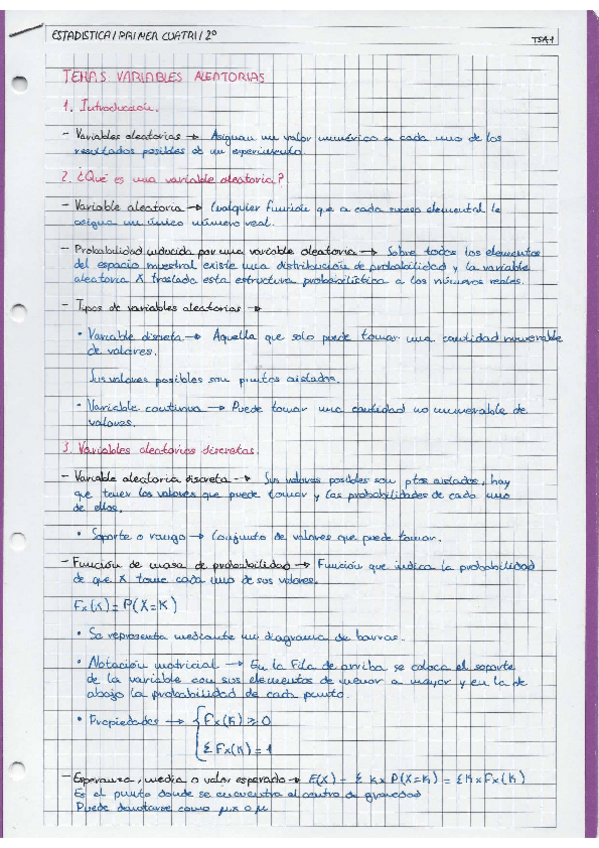 ESTADISTICA / PRIMER CUATRI / 2º
TSA-1
TEMA 5 VARIABLES ALEATORIAS
1. Introducción.
- Variables aleatorias → Asignan un valor numérico a cada uno de los
resultados posibles de un experimento.
2. ¿Qué es una variable aleatoria?.
- Variable aleatoria → Cualquier función que a cada suceso elemental le
asigna un único número real.
- Probabilidad inducida por una variable aleatoria → Sobre todos los elementos
del espacio muestral existe una distribución de probabilidad y la variable
aleatoria X traslada esta estructura probabilística a los números reales.
- Tipos de variables aleatorias →
• Variable discreta → Aquella que solo puede tomar una cantidad numerable
de valores.
Sus valores posibles son puntos aislados.
• Variable continua → Puede tomar una cantidad no numerable de
valores.
3. Variables aleatorias discretas.
- Variable aleatoria discreta → Sus valores posibles son ptos aislados, hay
que tener los valores que puede tomar y las probabilidades de cada uno
de ellos.
• Soporte o rango → Conjunto de valores que puede tomar.
- Función de masa de probabilidad → Función que indica la probabilidad
de que X tome cada uno de sus valores.
Fx(K) = P(X=K)
• Se representa mediante un diagrama de barras.
• Notación matricial → En la fila de arriba se coloca el soporte
de la variable con sus elementos de menor a mayor y en la de
abajo la probabilidad de cada punto.
• Propiedades → { Fx(K) ≥ 0
Σ Fx(K) = 1
- Esperanza, media o valor esperado → E(X) = Σ K x P(X=K) = Σ K x Fx(K)
Es el punto donde se encuentra el centro de gravedad
Puede denotarse como μx o μ